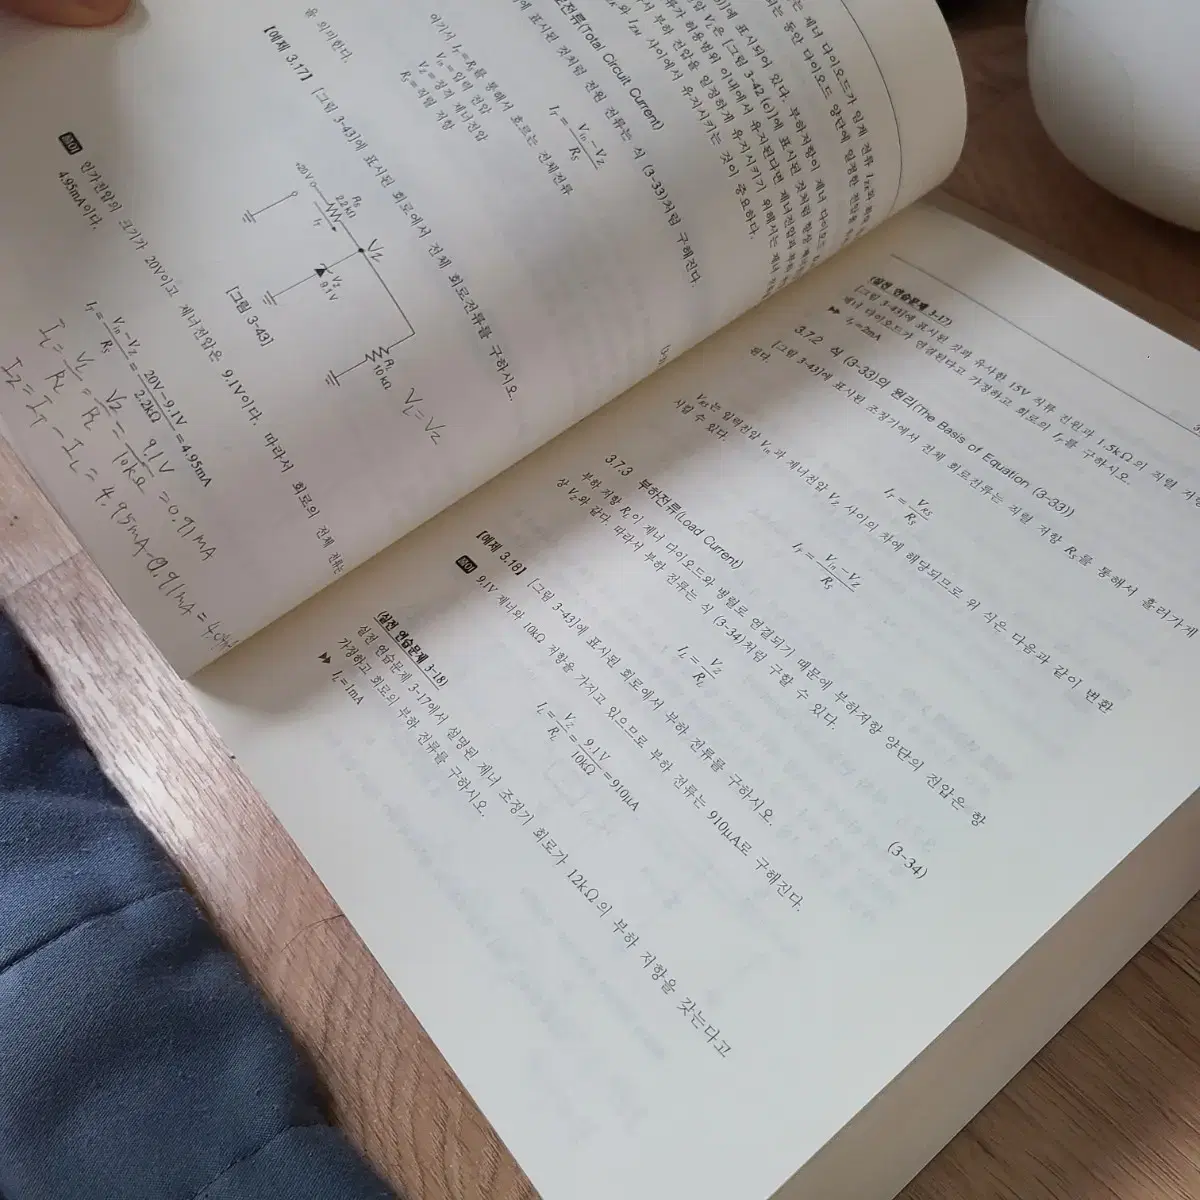 는 제너 다이오드가 일제 전류
되는 동안 다이오드 양단에 일정한 전압을
에 표시되어 있다. 부하저항이 제너 다이오드
V_Z은 [그림 3-42(c)]에 표시된 것처럼 항상
류가 허용범위 이내에서 유지된다면 제너전압과 부하
서 부하 전압을 일정하게 유지시키기 위해서는 제너
와 I_ZM 사이에서 유지시키는 것이 중요하다.
로전류(Total Circuit Current)
에 표시된 것처럼 전원 전류는 식 (3-33)처럼 구해진다.
I_T = (V_in − V_Z) / R_S
여기서 I_T = R_S를 통해서 흐르는 전체전류
V_in = 입력 전압
V_Z = 정격 제너전압
R_S = 직렬 저항
을 의미한다.
[예제 3.17] [그림 3-43]에 표시된 회로에서 전체 회로전류를 구하시오.
+20V
R_S
2.2kΩ
I_T
V_Z
V_Z
9.1V
R_L
10kΩ
V_L = V_Z
[그림 3-43]
풀이 인가전압의 크기가 20V이고 제너전압은 9.1V이다. 따라서 회로의 전체 전류는
4.95mA이다.
I_T = (V_in − V_Z) / R_S = (20V − 9.1V) / 2.2kΩ = 4.95mA
I_L = V_L / R_L = V_Z / R_L = 9.1V / 10kΩ = 0.91mA
I_Z = I_T − I_L = 4.95mA − 0.91mA =
(실전 연습문제 3-17)
[그림 3-43]에 표시된 것과 유사한 15V 직류 전원과 1.5kΩ의 직렬
제너 다이오드가 연결된다고 가정하고 회로의 I_T를 구하시오.
▶▶ I_T = 2mA
3.7.2 식 (3-33)의 원리(The Basis of Equation (3-33))
[그림 3-43]에 표시된 조정기에서 전체 회로전류는 직렬 저항 R_S를 통해서 흘러가게
된다.
I_T = V_RS / R_S
V_RS는 입력전압 V_in과 제너전압 V_Z 사이의 차에 해당되므로 위 식은 다음과 같이 변환
시킬 수 있다.
I_T = (V_in − V_Z) / R_S
3.7.3 부하전류(Load Current)
부하 저항 R_L이 제너 다이오드와 병렬로 연결되기 때문에 부하저항 양단의 전압은 항
상 V_Z와 같다. 따라서 부하 전류는 식 (3-34)처럼 구할 수 있다.
I_L = V_Z / R_L (3-34)
[예제 3.18] [그림 3-43]에 표시된 회로에서 부하 전류를 구하시오.
풀이 9.1V 제너와 10kΩ 저항을 가지고 있으므로 부하 전류는 910μA로 구해진다.
I_L = V_Z / R_L = 9.1V / 10kΩ = 910μA
(실전 연습문제 3-18)
실전 연습문제 3-17에서 설명된 제너 조정기 회로가 12kΩ의 부하 저항을 갖는다고
가정하고 회로의 부하 전류를 구하시오.
▶▶ I_L = 1mA